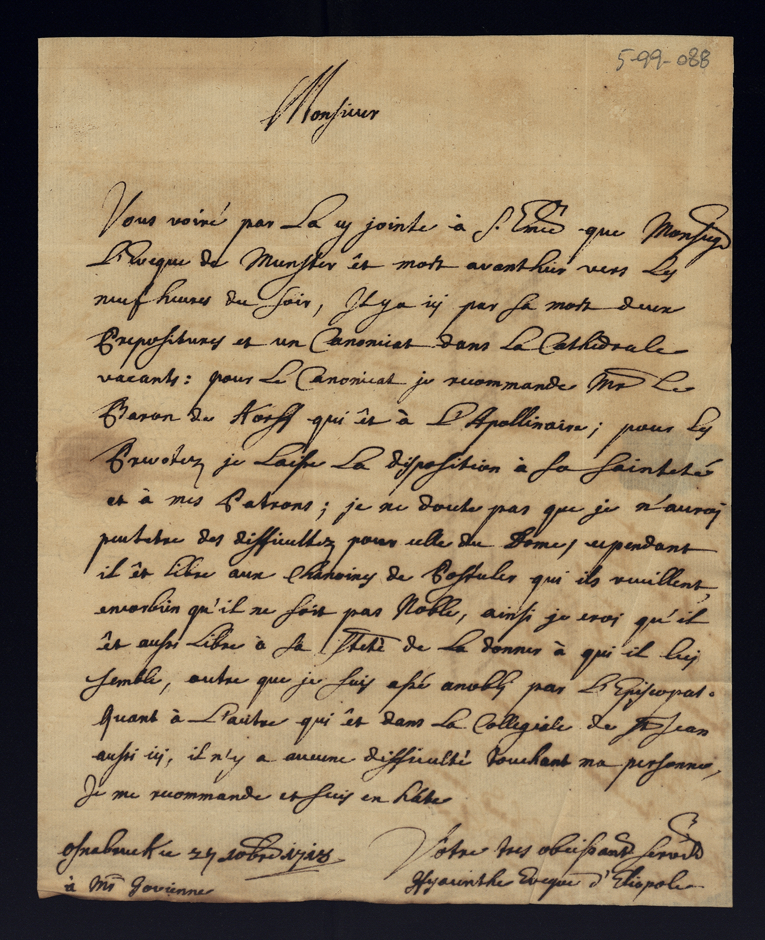 5-99-088
Monsieur
Vous voiré par La cy jointe à S. Emce que Monsieg
L'Eveque de Munster êt mort avanthier vers Les
neuf heures du soir, Il y a icy par sa mort deux
Prepositures et un Canonicat dans La Cathedrale
vacants: pour Le Canonicat je recommande Mr Le
Baron de qui êt à L'Apollinaire; pour Les
Prevotez je Laisse La disposition à sa sainteté
et à mes Patrons; je ne doute pas que je n'auroi
peutetre des difficultez pour celle du Dome, cependant
il êt Libre aux Chanoines de Postuler qui ils veuillent
encorbien qu'il ne soit pas Noble, ainsi je croi qu'il
êt aussi Libre à sa Steté de La donner à qui il Luy
semble, outre que je suis assé anobly par L'Episcopat.
Quant à L'autre qui êt dans La Collegiale de St Jean
aussi icy, il n'y a aucune difficulté touchant ma personne,
Je me recommande et suis en hâte
Osnabruck ce 27 Xobre 1718
Vôtre tres obeissant
Hyacinthe Eveque d'Eliopole
à Mr